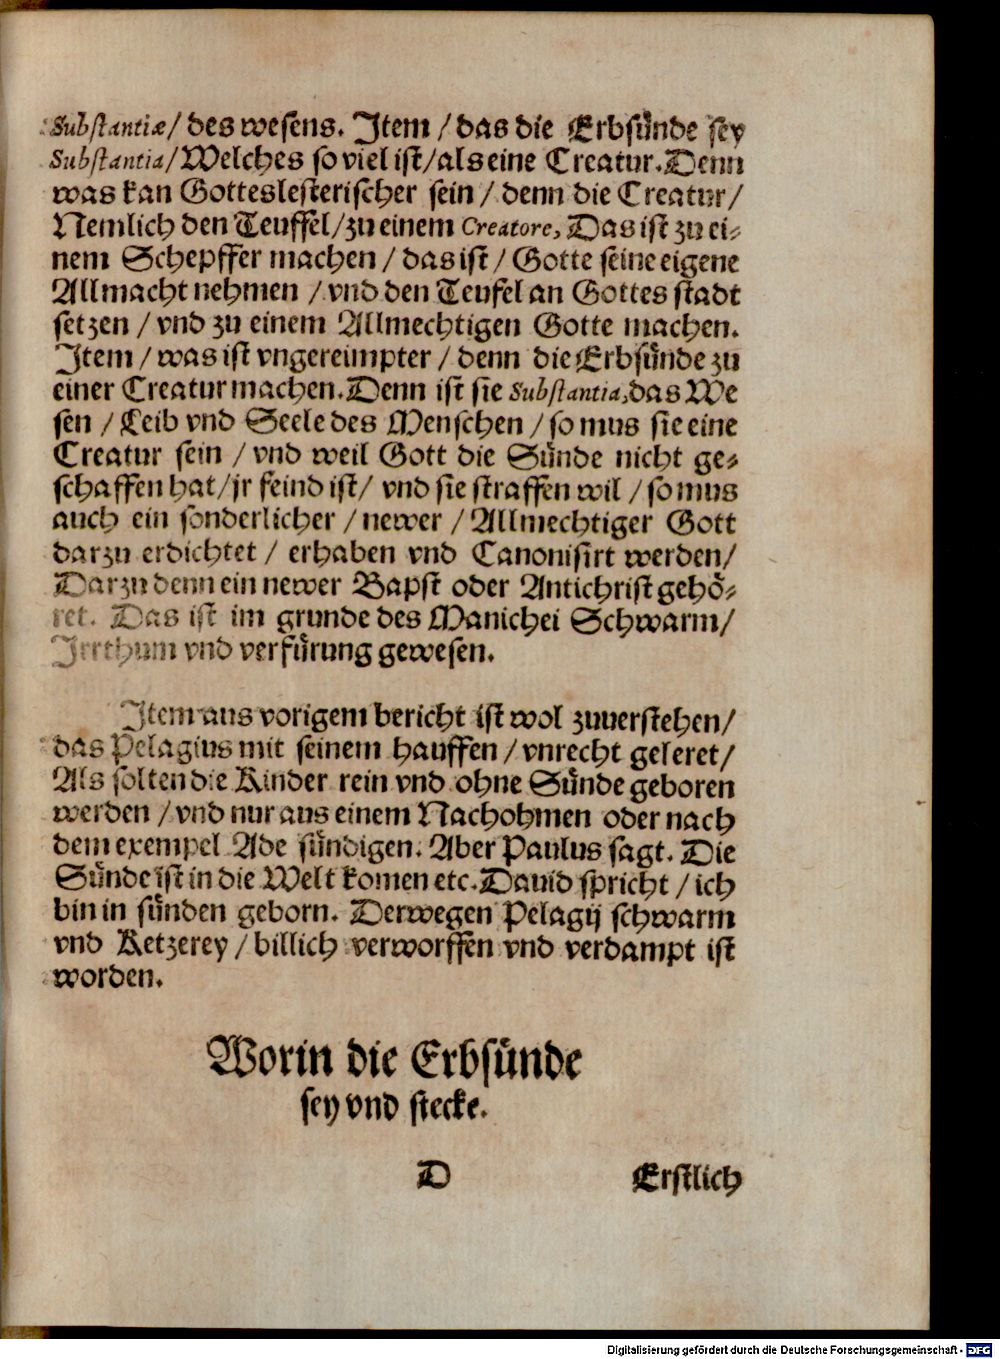 Substantiæ/ des wesens. Item / das die Erbsünde sey
Substantia/ Welches so viel ist/als eine Creatur. Denn
was kan Gotteslesterischer sein / denn die Creatur/
Nemlich den Teuffel/zu einem Creatore, Das ist zu ei-
nem Schepffer machen / das ist / Gotte seine eigene
Allmacht nehmen / vnd den Teufel an Gottes stadt
setzen / vnd zu einem Allmechtigen Gotte machen.
Item / was ist vngereimpter / denn die Erbsünde zu
einer Creatur machen. Denn ist sie Substantia, das We
sen / Leib vnd Seele des Menschen / so mus sie eine
Creatur sein / vnd weil Gott die Sünde nicht ge-
schaffen hat/jr feind ist/ vnd sie straffen wil / so mus
auch ein sonderlicher / newer / Allmechtiger Gott
darzu erdichtet / erhaben vnd Canonisirt werden/
Darzu denn ein newer Bapst oder Antichrist gehö-
ret. Das ist im grunde des Manichei Schwarm/
Irrthum vnd verfürung gewesen.
Item aus vorigem bericht ist wol zuuerstehen/
das Pelagius mit seinem hauffen / vnrecht geleret/
Als solten die Kinder rein vnd ohne Sünde geboren
werden / vnd nur aus einem Nachohmen oder nach
dem exempel Ade sündigen. Aber Paulus sagt. Die
Sünde ist in die Welt komen etc. Dauid spricht / ich
bin in sünden geborn. Derwegen Pelagij schwarm
vnd Ketzerey / billich verworffen vnd verdampt ist
worden.
Worin die Erbsünde
sey vnd stecke.
D Erstlich
Digitalisierung gefördert durch die Deutsche Forschungsgemeinschaft - DFG